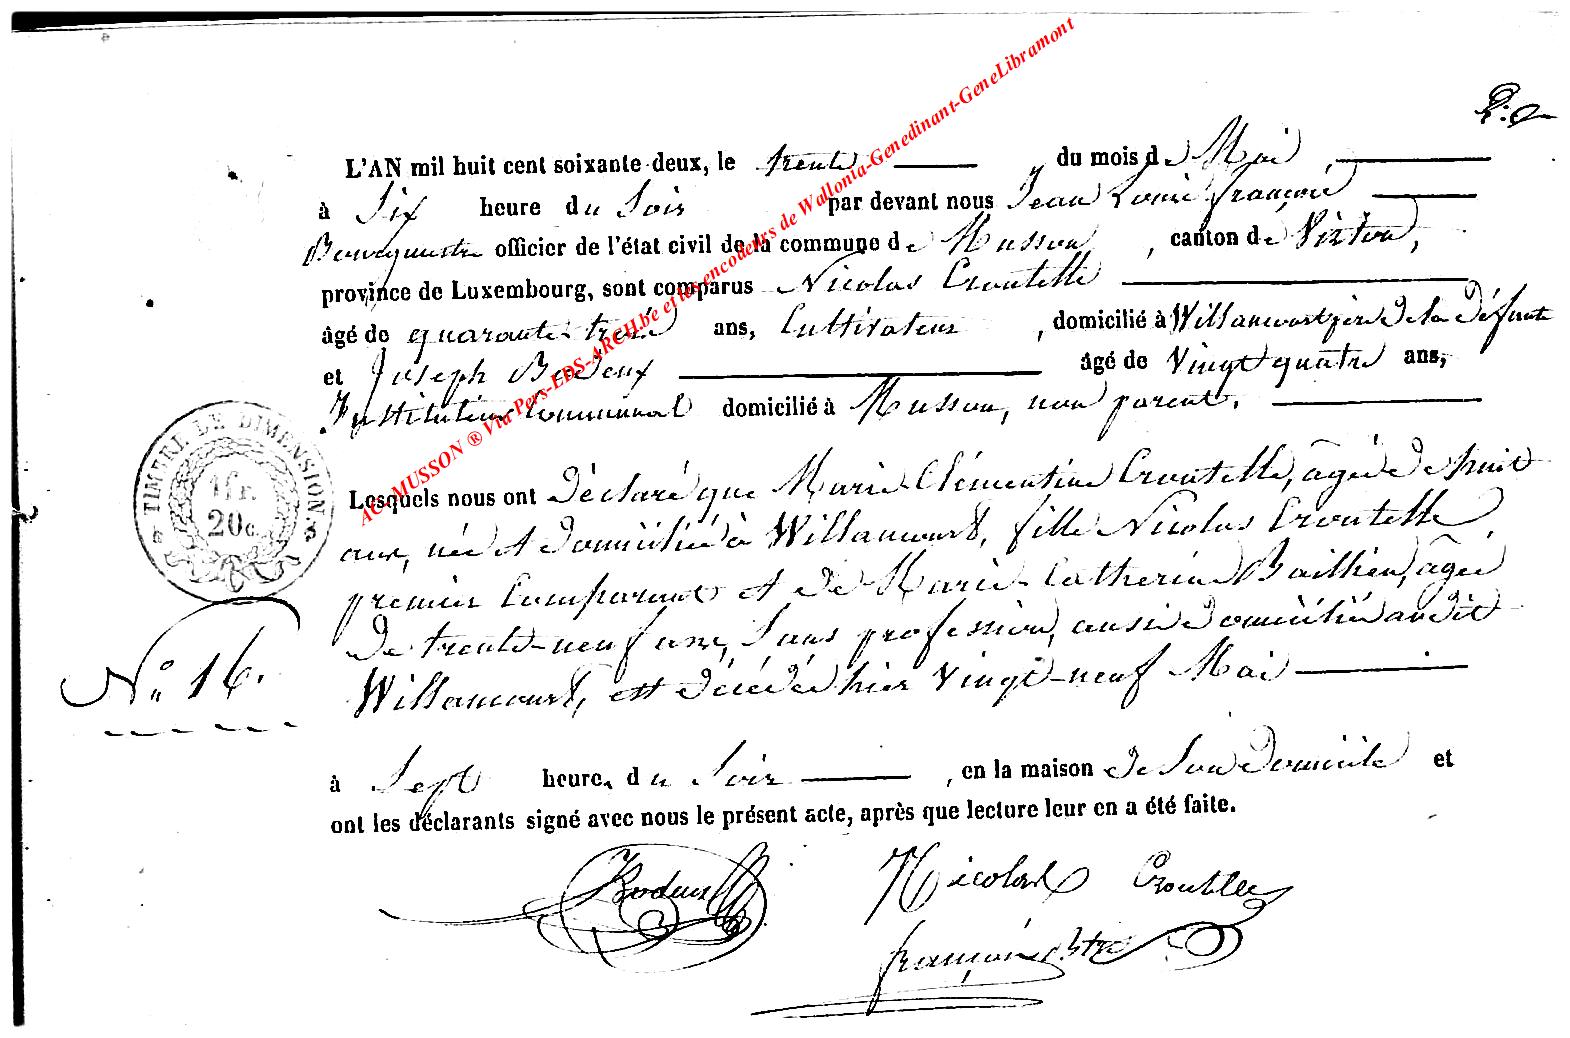 AC MUSSON ® Via Pers-EDS-ARCH.be et les encodeurs de Wallonia-Genedinant-GeneLibramont
L'AN mil huit cent soixante-deux, le trente du mois de Mai,
à Six heure du Soir par devant nous Jean Louis françois
Bourgmestre officier de l'état civil de la commune de Musson, canton de Virton,
province de Luxembourg, sont comparus Nicolas Croutelle
âgé de quarante-trois ans, Cultivateur, domicilié à Willancourt père de la défunte
et Joseph Bodeux âgé de Vingt quatre ans,
Instituteur Communal domicilié à Musson, non parent.
TIMBRE DE DIMENSION
1 fr.
20c.
Lesquels nous ont déclaré que Marie-Clémentine Croutelle, âgée de huit
ans, née et domiciliée à Willancourt, fille Nicolas Croutelle
premier Comparant et de Marie-Catherine Baillieu, âgée
de trente-neuf ans, Sans profession, aussi domiciliée audit
Willancourt, est décédée hier Vingt-neuf Mai
N° 16.
à Sept heure. du Soir, en la maison de Son domicile et
ont les déclarants signé avec nous le présent acte, après que lecture leur en a été faite.
JBodeux Nicolas Croutelle
françois, bstre